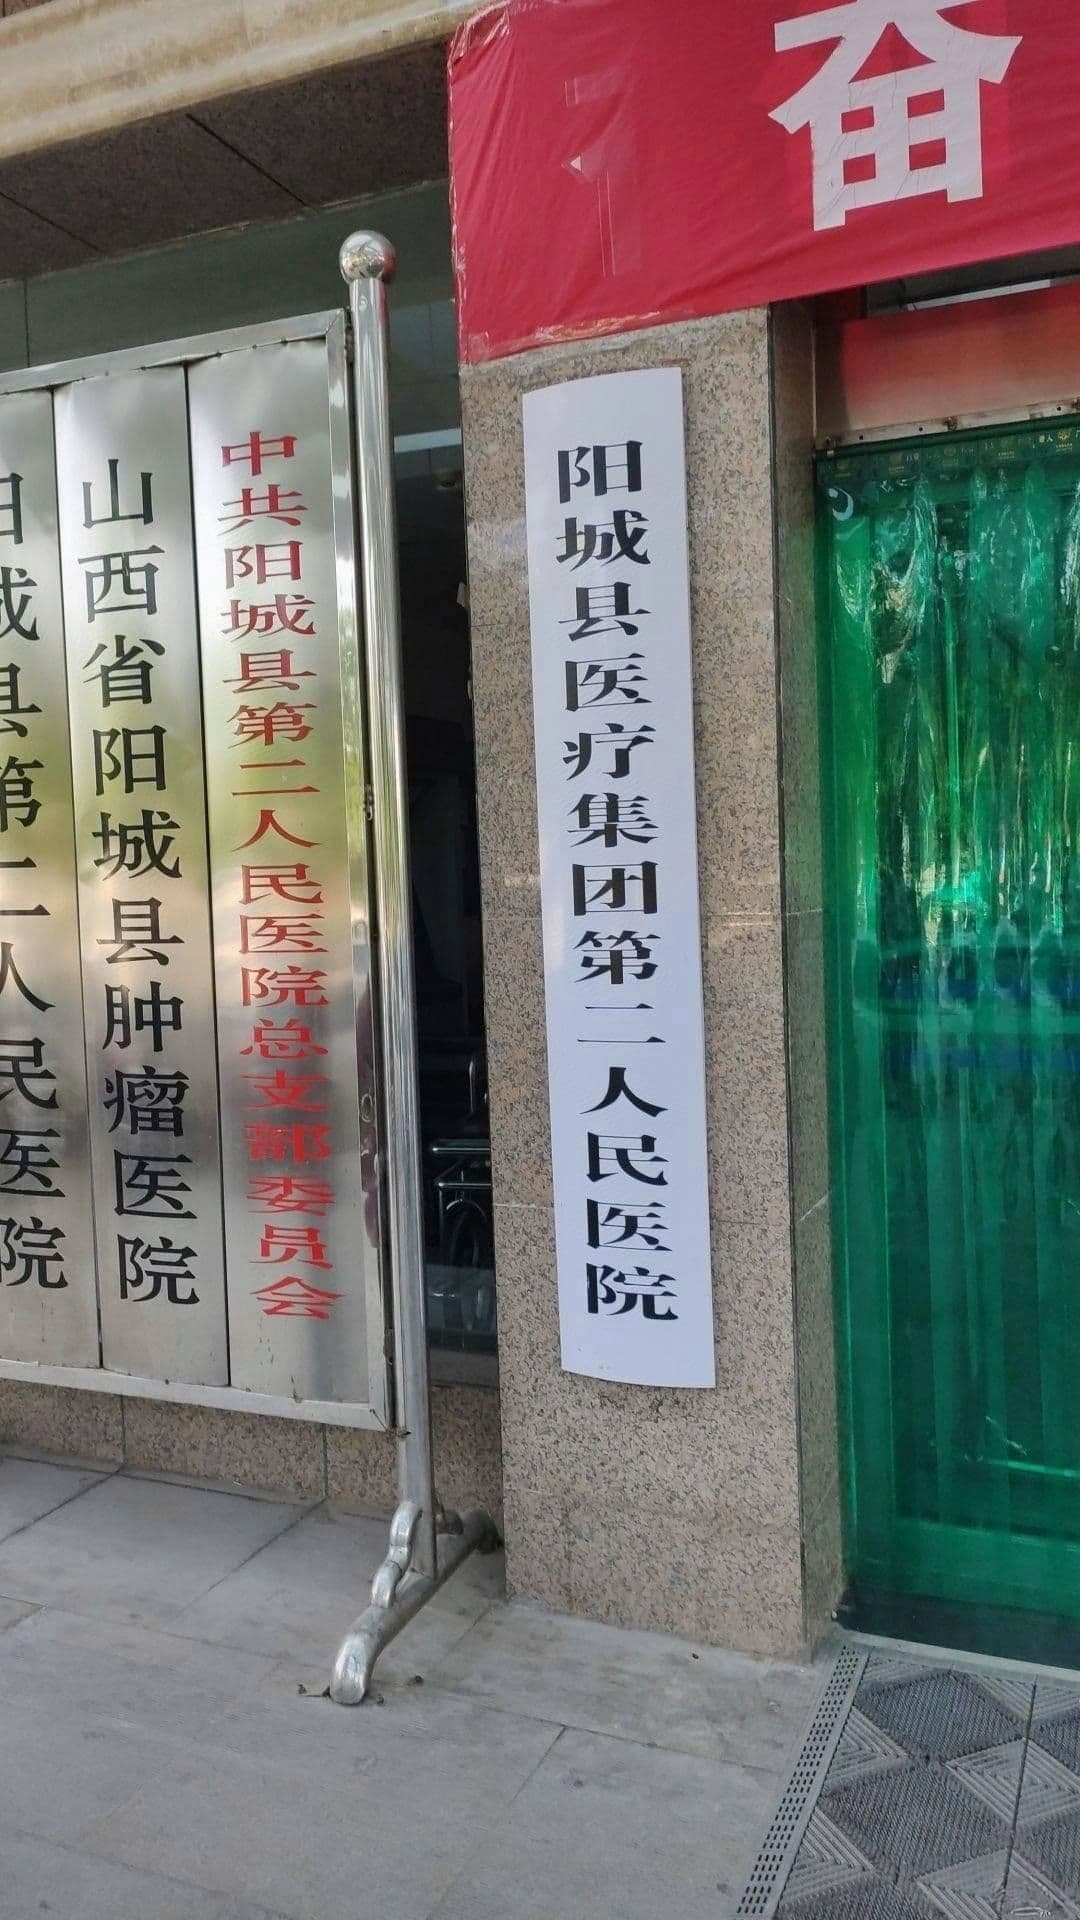 奋
阳城县医疗集团第二人民医院
中共阳城县第二人民医院总支部委员会
山西省阳城县肿瘤医院
阳城县第二人民医院